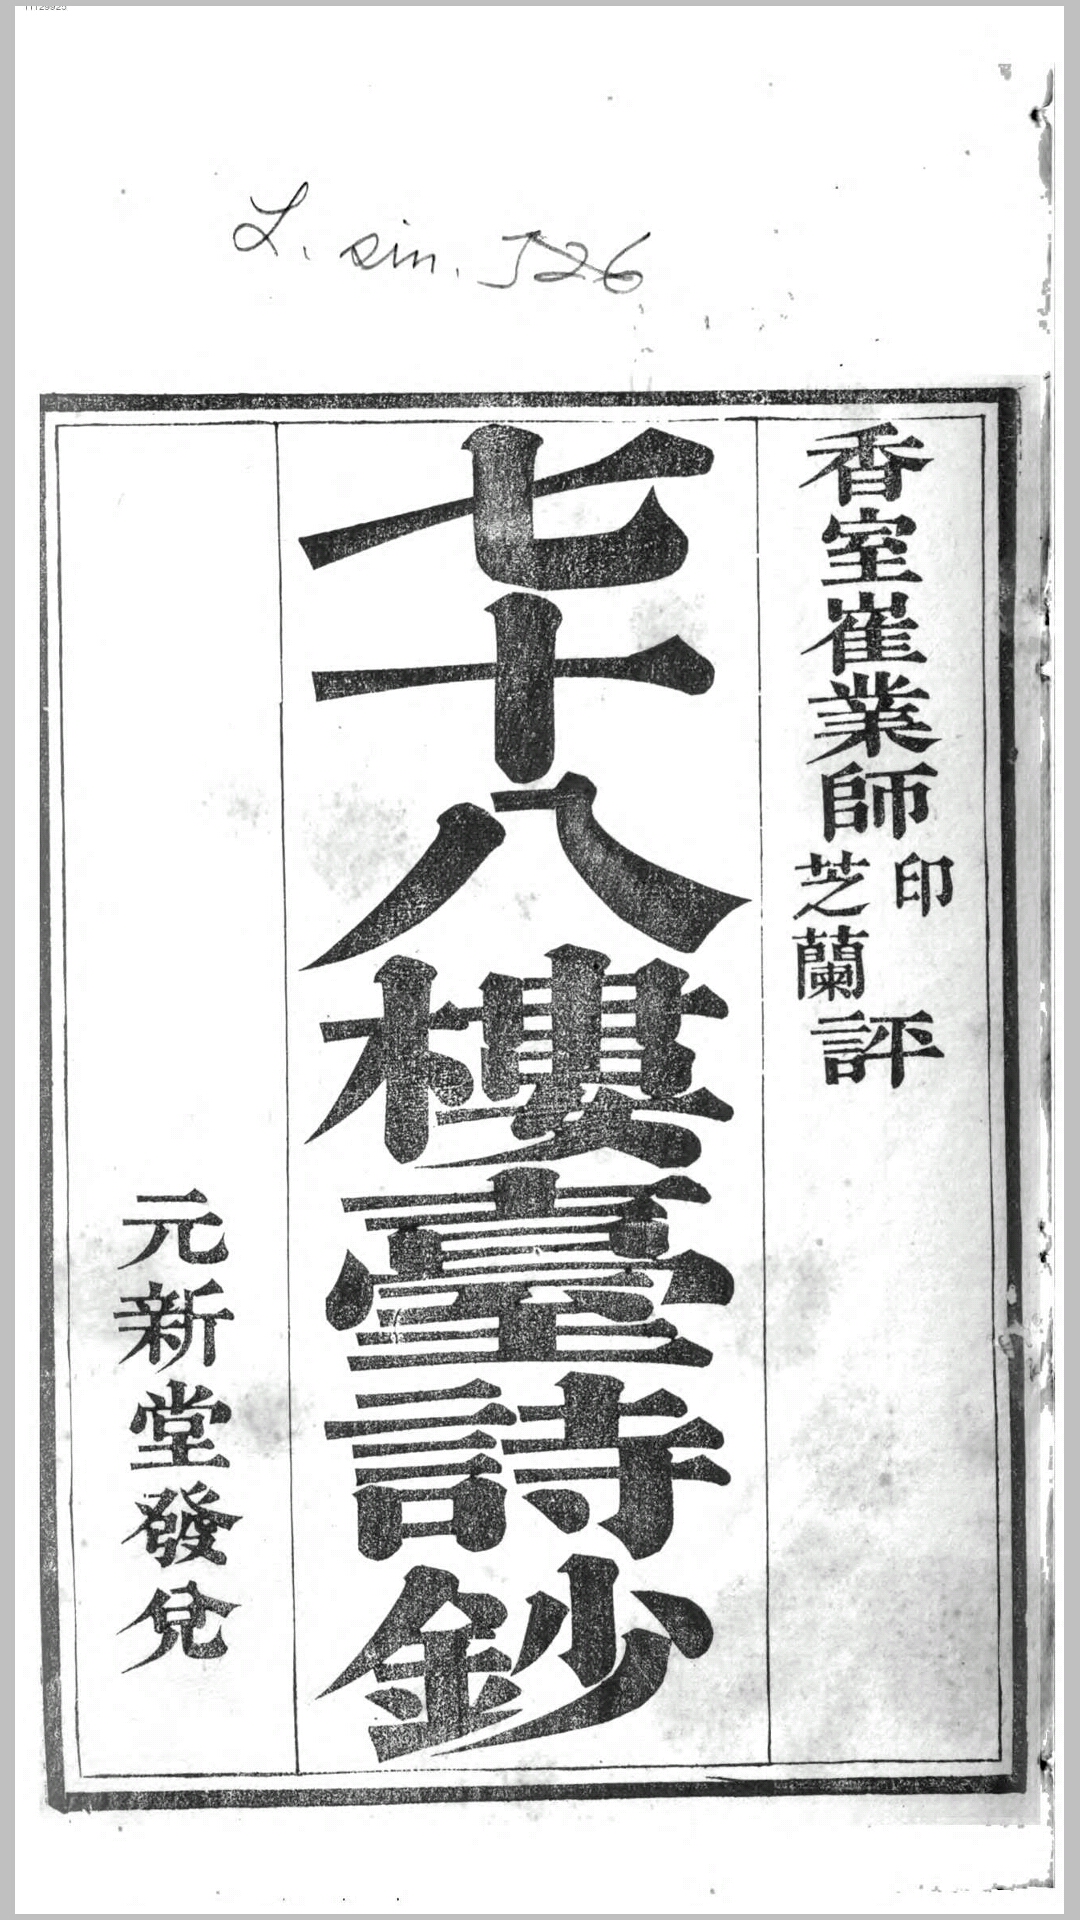 L. sin. J26
香室崔業師印芝蘭評
七十八樓臺詩鈔
元新堂發兌